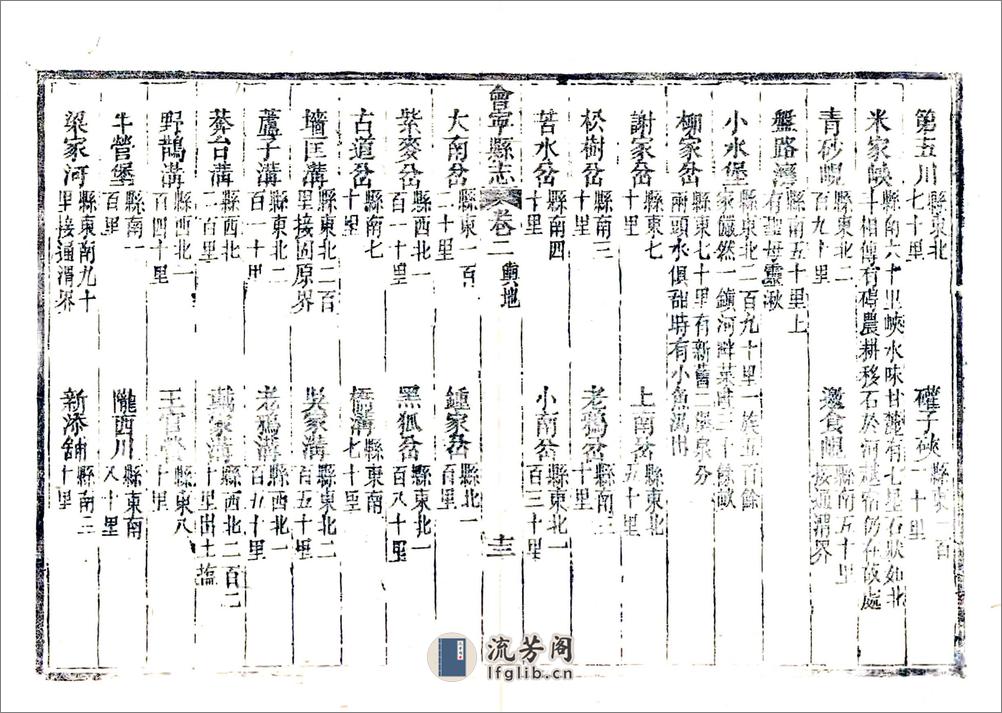 第五川 縣東北七十里 礶子硤 縣東一百一十里
米家峽 縣南六十里峽水味甘麓有七星石狀如北斗相傳有碍農耕移石於河越宿仍在故處
青砂峴 縣東北二百九十里 邀食峴 縣南五十里接通渭界
盤路灣 縣南五十里上有聖母靈湫
小水堡 縣東北二百九十里一族五百餘家儼然一鎮河畔菜畦三十餘畝
柳家岔 縣東七十里有新舊二 泉分兩頭水俱甜時有小魚湧出
謝家岔 縣東七十里 上南岔 縣東北五十里
松樹岔 縣南三十里 老鴉岔 縣南三十里
苦水岔 縣南四十里 小南岔 縣東北一百三十里
會寧縣志 卷二 輿地 十三
大南岔 縣東一百二十里 鍾家岔 縣東北一百里
紫麥岔 縣西北一百一十里 黑狐岔 縣東北一百八十里
古道岔 縣南七十里 橋溝 縣東南七十里
墻匡溝 縣東北二百里接固原界 吳家溝 縣東北二百五十里
蘆子溝 縣東北二百一十里 老鴉溝 縣西北一百五十里
葬台溝 縣西北二百里 家溝 縣西北二百二十里出土塩
野鵲溝 縣西北一百四十里 王官 縣東八十里
牛營堡 縣南一百里 隴西川 縣東南八十里
梁家河 縣東南九十里接通渭界 新添鋪 縣南二十里
流芳阁
lfglib.cn